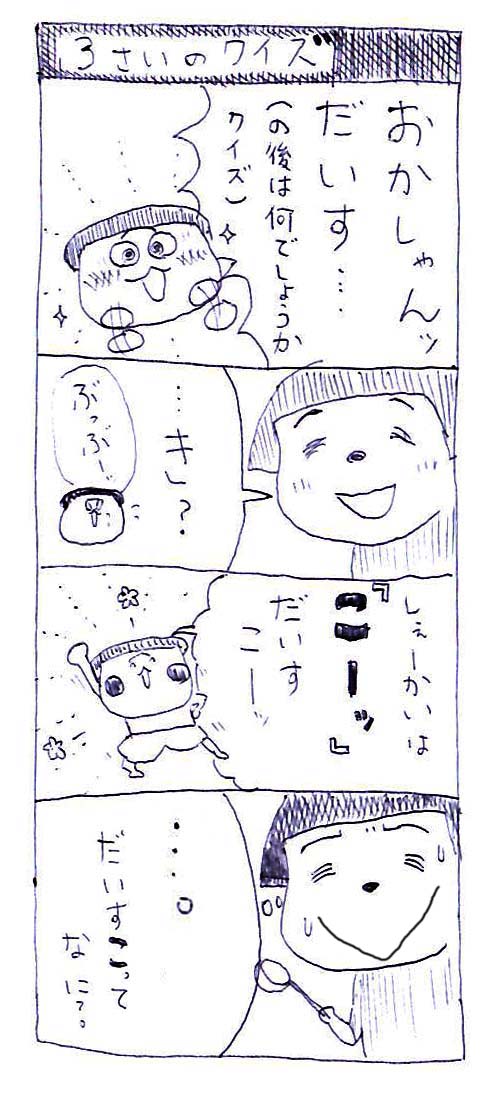 3さいのクイズ
おかしゃんッ
だいす…
(の後は何でしょうか
クイズ)
…き?
ぶっぶー
しぇーかいは
『こーッ』
だいす
こーッ
・・・。
だいすこって
なに?。